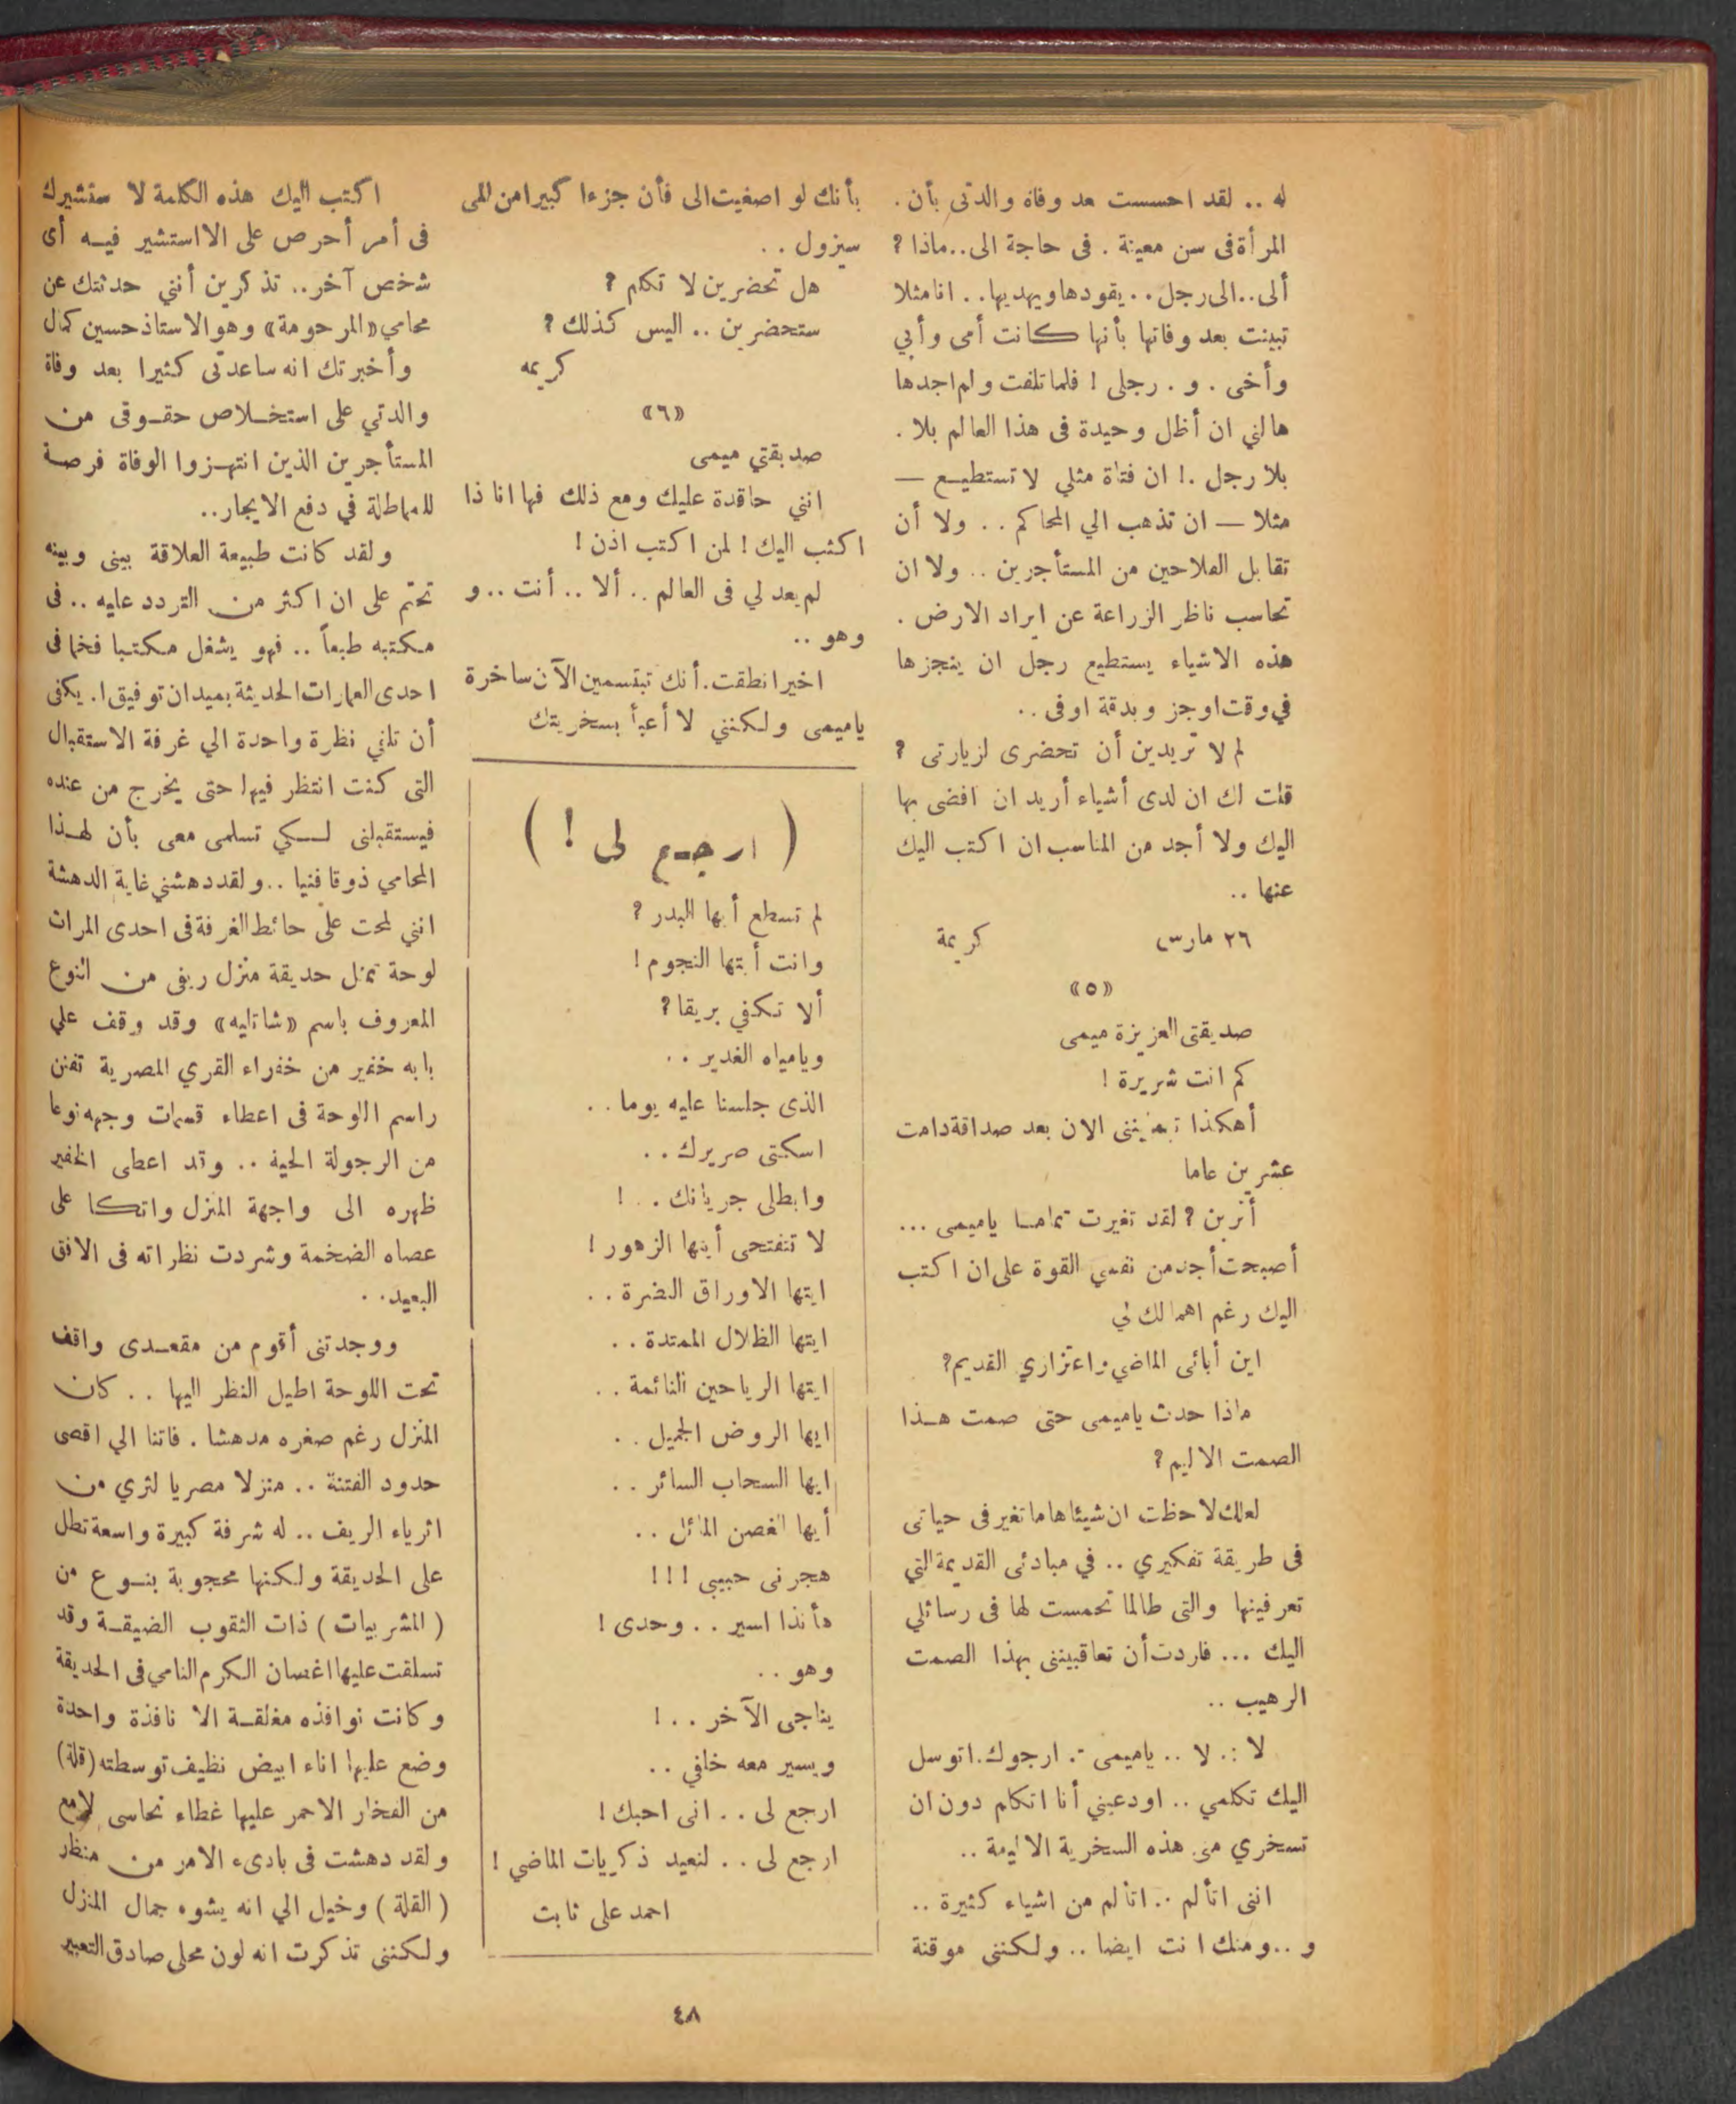 له .. لقد احسست بعد وفاة والدتى بأن .
المرأة فى سن معينة . فى حاجة الى..ماذا ؟
ألى..الى رجل .. يقودها ويهديها.. انا مثلا
تبينت بعد وفاتها بأنها كانت أمى وأبي
وأخى . و . رجلى ! فلما تلفت ولم اجدها
هالني ان أظل وحيدة فى هذا العالم بلا .
بلا رجل .! ان فتاة مثلي لا تستطيع —
مثلا — ان تذهب الي المحاكم .. ولا أن
تقابل الفلاحين من المستأجرين .. ولا ان
تحاسب ناظر الزراعة عن ايراد الارض .
هذه الاشياء يستطيع رجل ان ينجزها
في وقت اوجز وبدقة اوفى ..
لم لا تريدين أن تحضرى لزيارتى ؟
قلت لك ان لدى أشياء أريد ان افضى بها
اليك ولا أجد من المناسب ان اكتب اليك
عنها ..
٢٦ مارس كريمة
«٥»
صديقتى العزيزة ميمى
كم انت شريرة !
أهكذا تهينينى الان بعد صداقة دامت
عشرين عاما
أترين ؟ لقد تغيرت تماما ياميمى ...
أصبحت أجد من نفسي القوة على ان اكتب
اليك رغم اهمالك لي
اين أبائى الماضي واعتزازي القديم؟
ماذا حدث ياميمى حتى صمت هذا
الصمت الاليم؟
لعلك لاحظت ان شيئا هاما تغير فى حياتى
فى طريقة تفكيري .. في مبادئى القديمة التي
تعرفينها والتى طالما تحمست لها فى رسائلي
اليك ... فاردت أن تعاقبيننى بهذا الصمت
الرهيب ..
لا .. لا .. ياميمى .. ارجوك. اتوسل
اليك تكلمي .. اودعيني أنا اتكلم دون ان
تسخري منى هذه السخرية الاليمة ..
اننى اتألم .. اتألم من اشياء كثيرة ..
و .. ومنك انت ايضا .. ولكننى موقنة
بأنك لو اصغيت الى فأن جزءا كبيرا من المى
سيزول ..
هل تحضرين لا تكلم ؟
ستحضرين .. اليس كذلك ؟
كريمه
«٦»
صديقتي ميمى
انني حاقدة عليك ومع ذلك فها انا ذا
اكتب اليك ! لمن اكتب اذن !
لم يعد لي فى العالم .. ألا .. أنت .. و
وهو ..
اخيرا نطقت. أنك تبتسمين الآن ساخرة
ياميمى ولكنني لا أعبأ بسخريتك
( ارجع لى ! )
لم تسطع أيها البدر ؟
وانت أيتها النجوم !
ألا تكفي بريقا ؟
ويامياه الغدير ..
الذى جلسنا عليه يوما ..
اسكتى صريرك ..
وابطلى جريانك .. !
لا تتفتحى أيتها الزهور !
ايتها الاوراق النضرة ..
ايتها الظلال الممتدة ..
ايتها الرياحين النائمة ..
ايها الروض الجميل ..
ايها السحاب السائر ..
أيها الغصن المائل ..
هجرنى حبيبى ! ! !
هأنذا اسير .. وحدى !
وهو ..
يناجى الآخر .. !
ويسير معه خلفي ..
ارجع لى .. انى احبك !
ارجع لى .. لنعيد ذكريات الماضي !
احمد على ثابت
اكتب اليك هذه الكلمة لا ستشيرك
فى أمر أحرص على الا استشير فيه أى
شخص آخر .. تذكرين أنني حدثتك عن
محامي «المرحومة» وهو الاستاذ حسين كمال
وأخبرتك انه ساعدنى كثيرا بعد وفاة
والدتي على استخلاص حقوقى من
المستأجرين الذين انتهزوا الوفاة فرصة
للمماطلة في دفع الايجار..
ولقد كانت طبيعة العلاقة بينى وبينه
تحتم على ان اكثر من التردد عليه .. فى
مكتبه طبعاً .. فهو يشغل مكتبا فخما فى
احدى العمارات الحديثة بميدان توفيق ا. يكفى
أن تلقي نظرة واحدة الي غرفة الاستقبال
التى كنت انتظر فيها حتى يخرج من عنده
فيستقبلنى لكي تسلمى معى بأن لهذا
المحامي ذوقا فنيا .. ولقد دهشني غاية الدهشة
انني لمحت على حائط الغرفة فى احدى المرات
لوحة تمثل حديقة منزل ريفى من النوع
المعروف باسم «شاتليه» وقد وقف علي
بابه خفير من خفراء القري المصرية تفنن
راسم اللوحة فى اعطاء قسمات وجهه نوعا
من الرجولة الحية .. وقد اعطى الخفير
ظهره الى واجهة المنزل واتكا على
عصاه الضخمة وشردت نظراته فى الافق
البعيد ..
ووجدتنى أقوم من مقعدى واقف
تحت اللوحة اطيل النظر اليها .. كان
المنزل رغم صغره مدهشا . فاتنا الي اقصى
حدود الفتنة .. منزلا مصريا لثري من
اثرياء الريف .. له شرفة كبيرة واسعة تطل
على الحديقة ولكنها محجوبة بنوع من
( المشربيات ) ذات الثقوب الضيقة وقد
تسلقت عليها اغصان الكرم النامي فى الحديقة
وكانت نوافذه مغلقة الا نافذة واحدة
وضع عليها اناء ابيض نظيف توسطته (قلة)
من الفخار الاحمر عليها غطاء نحاسى لامع
ولقد دهشت فى بادىء الامر من منظر
( القلة ) وخيل الي انه يشوه جمال المنزل
ولكننى تذكرت انه لون محلى صادق التعبير
٤٨